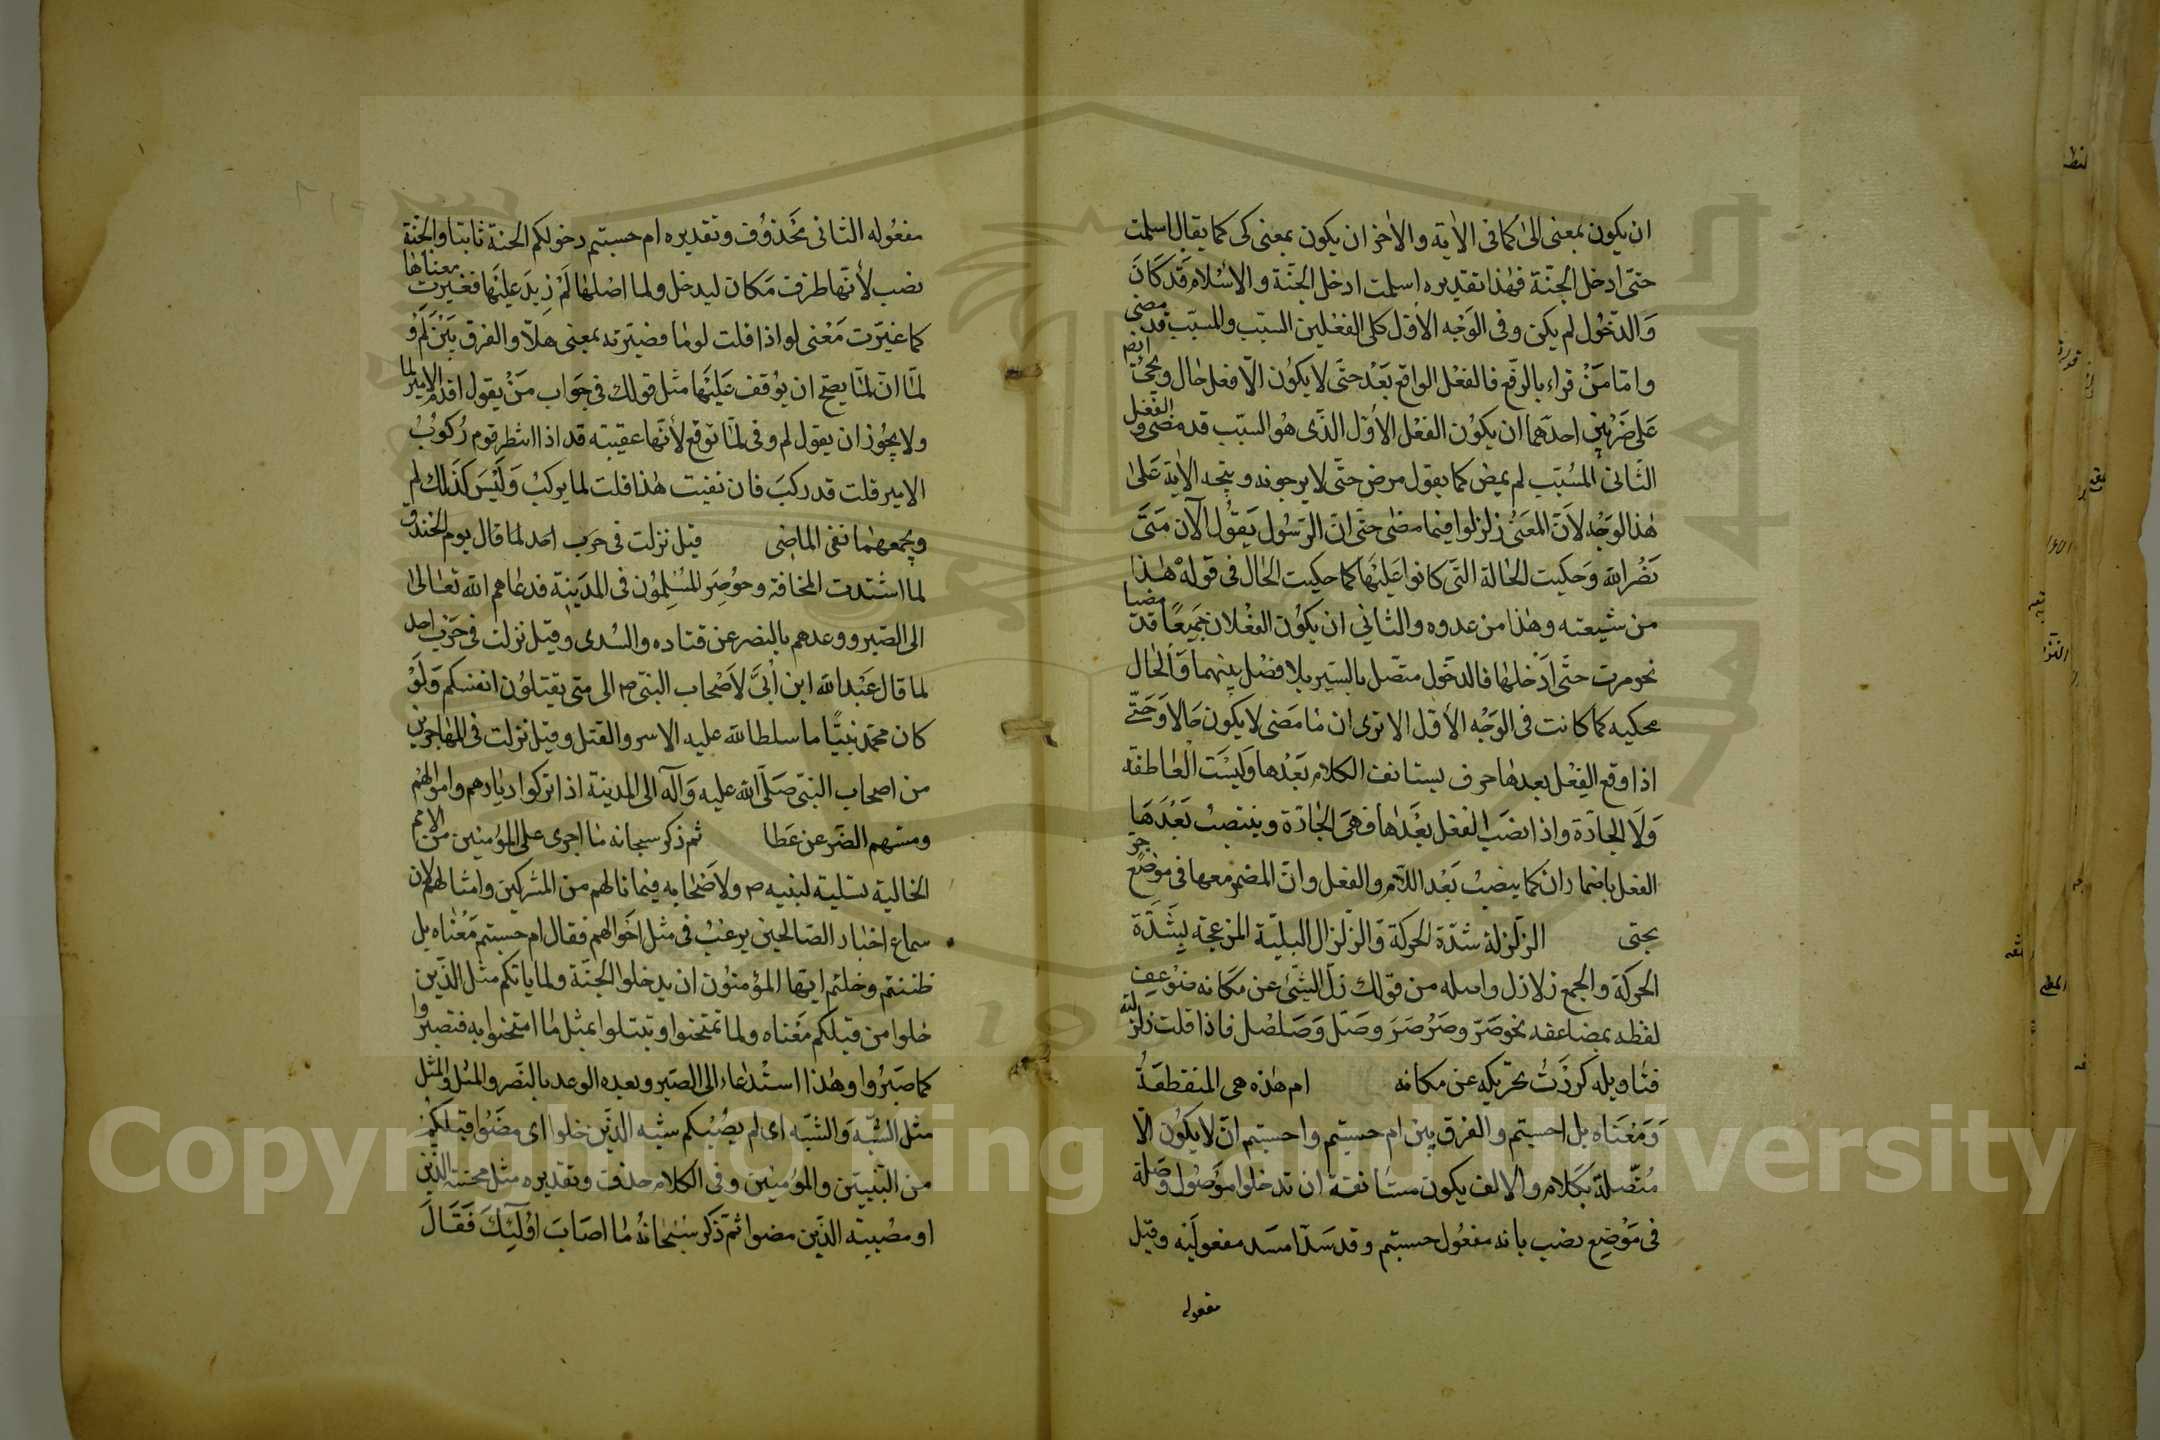 ان يكون بمعنى الى كما فى الاية والاخر ان يكون بمعنى كى كما يقال اسلمت
حتى ادخل الجنة فهذا تقديره اسلمت ادخل الجنة والاسلام قد كان
والدخول لم يكن وفى الوجه الاول كلى الفعلين السبب والمسبب قد مضى
واما من قراء بالرفع فالفعل الواقع بعد حتى لا يكون الا فعل حال ويجئ ايضا
على ضربين احدهما ان يكون الفعل الاول الذى هو السبب قد مضى والفعل
الثانى المسبب لم يمض كما يقول مرض حتى لا يرجونه ويتجه الاية على
هذا الوجه لان المعنى زلزلوا فيما مضى حتى ان الرسول يقول الآن متى
نصر الله وحكيت الحالة التى كانوا عليها كما حكيت الحال فى قوله هذا
من شيعته وهذا من عدوه والثانى ان يكون الفعلان جميعا قد مضيا
نحو مرت حتى ادخلها فالدخول متصل بالسير بلا فصل بينهما والحال
محكيه كما كانت فى الوجه الاول الا ترى ان ما مضى لا يكون حالا وحتى
اذا وقع الفعل بعدها حرف يستانف الكلام بعدها وليست العاطفة
ولا الجارة واذا نصب الفعل بعدها فهى الجارة وينتصب بعدها
الفعل باضمار ان كما ينصب بعد اللام والفعل وان المضمر معها فى موضع جر
بحتى الزلزلة شدة الحركة والزلزال البلية المزعجة لشدة
الحركة والجمع زلازل واصله من قولك زل الشئ عن مكانه ضوعف
لفظه بمضاعفه نحو صر وصرصر وصل وصلصل فاذا قلت زلزلته
فتاويله كررت تحريكه عن مكانه ام هذه هى المنقطعة
ومعناه بل احسبتم والفرق بين ام حسبتم واحسبتم ان لا يكون الا
متصلة بكلام والالف يكون مستانفة ان تدخلوا موصول وصلة
فى موضع نصب بانه مفعول حسبتم وقد سدا مسد مفعوليه وقيل
مفعوله
مفعوله الثانى محذوف وتقديره ام حسبتم دخولكم الجنة ثابتا والجنة
نصب لأنها ظرف مكان ليدخل ولما اصلها لم زيد عليها فغيرت معناها
كما غيرت معنى لو اذا قلت لو ما فصيرته بمعنى هلا والفرق بين لم و
لما ان لما يصح ان يوقف عليها مثل قولك فى جواب من يقول اقدم الامير لما
ولا يجوز ان يقول لم وفى لما توقع لأنها عقيبته قد اذا انتظر قوم ركوب
الامير قلت قد ركب فان نفيت هذا قلت لما يركب وليس كذلك لم
ويجمعهما نفى الماضى قيل نزلت فى حرب احد لما قال يوم الخندق
لما اشتدت المخافة وحوصر المسلمون فى المدينة فدعاهم الله تعالى
الى الصبر ووعدهم بالنصر عن قتاده والسدى وقيل نزلت فى حرب احد
لما قال عبد الله ابن ابى لاصحاب النبى ص الى متى يقتلون انفسكم ولو
كان محمد نبيا ما سلط الله عليه الاسر والقتل وقيل نزلت فى المهاجرين
من اصحاب النبى صلى الله عليه وآله الى المدينة اذا تركوا ديارهم واموالهم
ومسهم الضر عن عطا ثم ذكر سبحانه ما اجرى على المؤمنين من الامم
الخالية تسلية لنبيه ص ولاصحابه فيما نالهم من المشركين وامثالهم لان
سماع اخبار الصالحين يرغب فى مثل احوالهم فقال ام حسبتم معناه بل
ظننتم وخلتم ايها المؤمنون ان يدخلوا الجنة ولما ياتكم مثل الذين
خلوا من قبلكم معناه ولما تمتحنوا وتبتلوا بمثل ما امتحنوا به فتصبروا
كما صبروا وهذا استدعاء الى الصبر وبعده الوعد بالنصر والمثل والمثل
مثل الشبه والشبه اى لم يصبكم شبه الذين خلوا اى مضوا قبلكم
من النبيين والمؤمنين وفى الكلام حذف وتقديره مثل محنة الذين
او مصيبة الذين مضوا ثم ذكر سبحانه ما اصاب اولئك فقال
Copyright © King Saud University